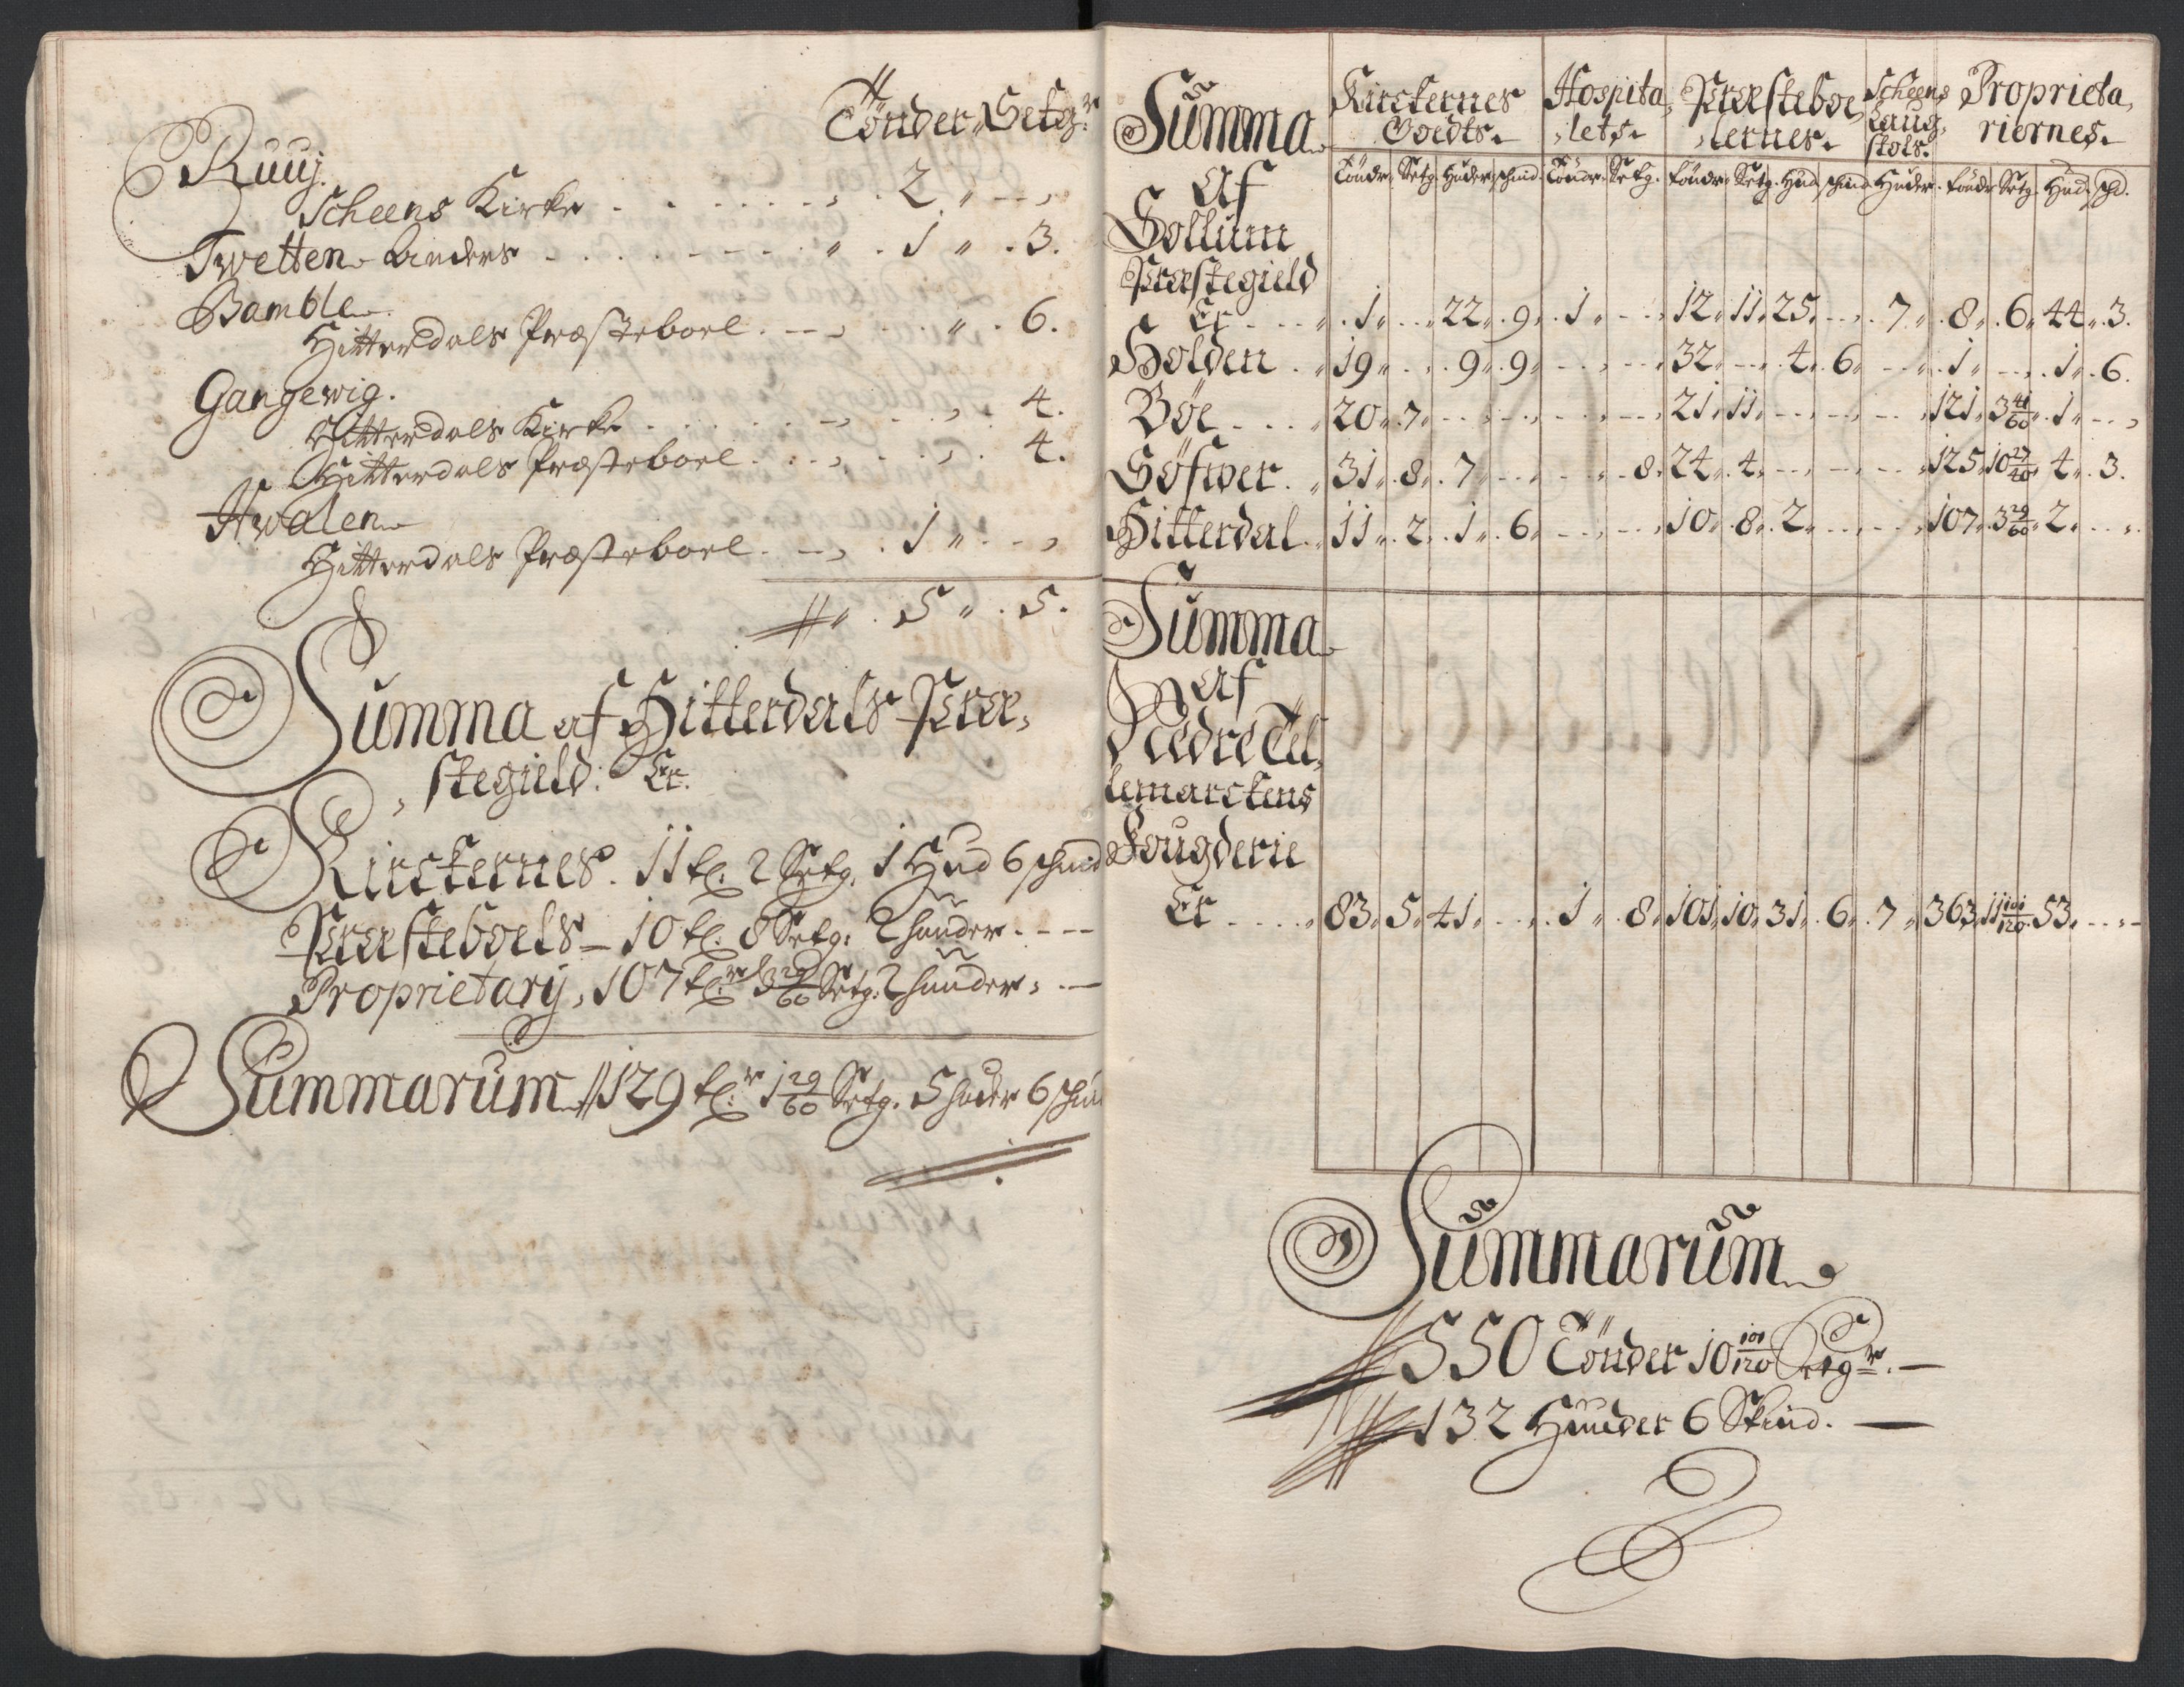 Tönder Setgr
Ruuj.
Scheens Kirke . . . . . . 2 " - -
Twetten Anders . . . . . " . 1 " . 3.
Bamble
Hitterdals Præsteboel . - - . . " . 6.
Gangewig.
Hitterdals Kirke . . . . . . 4.
Hitterdals Præsteboel . . . . . . 4.
Hwalen
Hitterdals Præsteboel . - - . 1 " . - -
" . 5 " . 5.
Summa af Hitterdals Præ,
, stegield: Er.
Kirckernes . 11 tr. 2 Setg. 1 Hud 6 schind
Præsteboels - 10 tr. 8 Setg: 2 huuder - - -
Proprietarij, 107 tr. 3 29/60 Setg: 2 huuder, -
Summarum 129 tr. 1 29/60 Setg. 5 huder 6 schin
Summa Kirckernes Hospita, Præsteboe, Scheens Proprieta,
Goedts. , lets. , lernes. Laug, riernes.
stols.
Töndr. Setg. Huder. schind. Töndr. Setg. Töndr. Setg. Hud. schind. Huder. Töndr. Setg. Hud. schd.
Af
Sollum
Præstegield
Er . . . " . 1 " . . . 22 " . 9 . 1 " . - . 12 " 11 " 25 . . . . 7 " . 8 " . 6 " 44 " . 3.
Holden . " 19 " . . . 9 " . 9 " - . . - . 32 " - . 4 " . 6 " - . . 1 " - . . 1 " . 6.
Böe . . . " 20 " . 7 " - . . - . . - . 21 " 11 " - . . - . . 121 " 3 41/60 " . 1 " - -
Söfwer . " 31 " . 8 " . 7 " - . . - . 8 . 24 " . 4 " - . . - . . 125 " 10 27/40 " 4 " . 3.
Hitterdal . " 11 " . 2 " . 1 " . 6 " - . . - . 10 " . 8 " . 2 " . - . . 107 " . 3 29/60 " 2 " . . .
Summa
Af
Nedre Tel,
lemarckens
Fougderie
Er . . . . " 83 " . 5 " 41 " . - . . 1 " . 8 " 101 " 10 " 31 " . 6 " . 7 " 363 " 11 101/120 " 53 " . . -
Summarum
550 Tönder 10 101/120 Setgr. —
132 Huuder 6 Skind. —